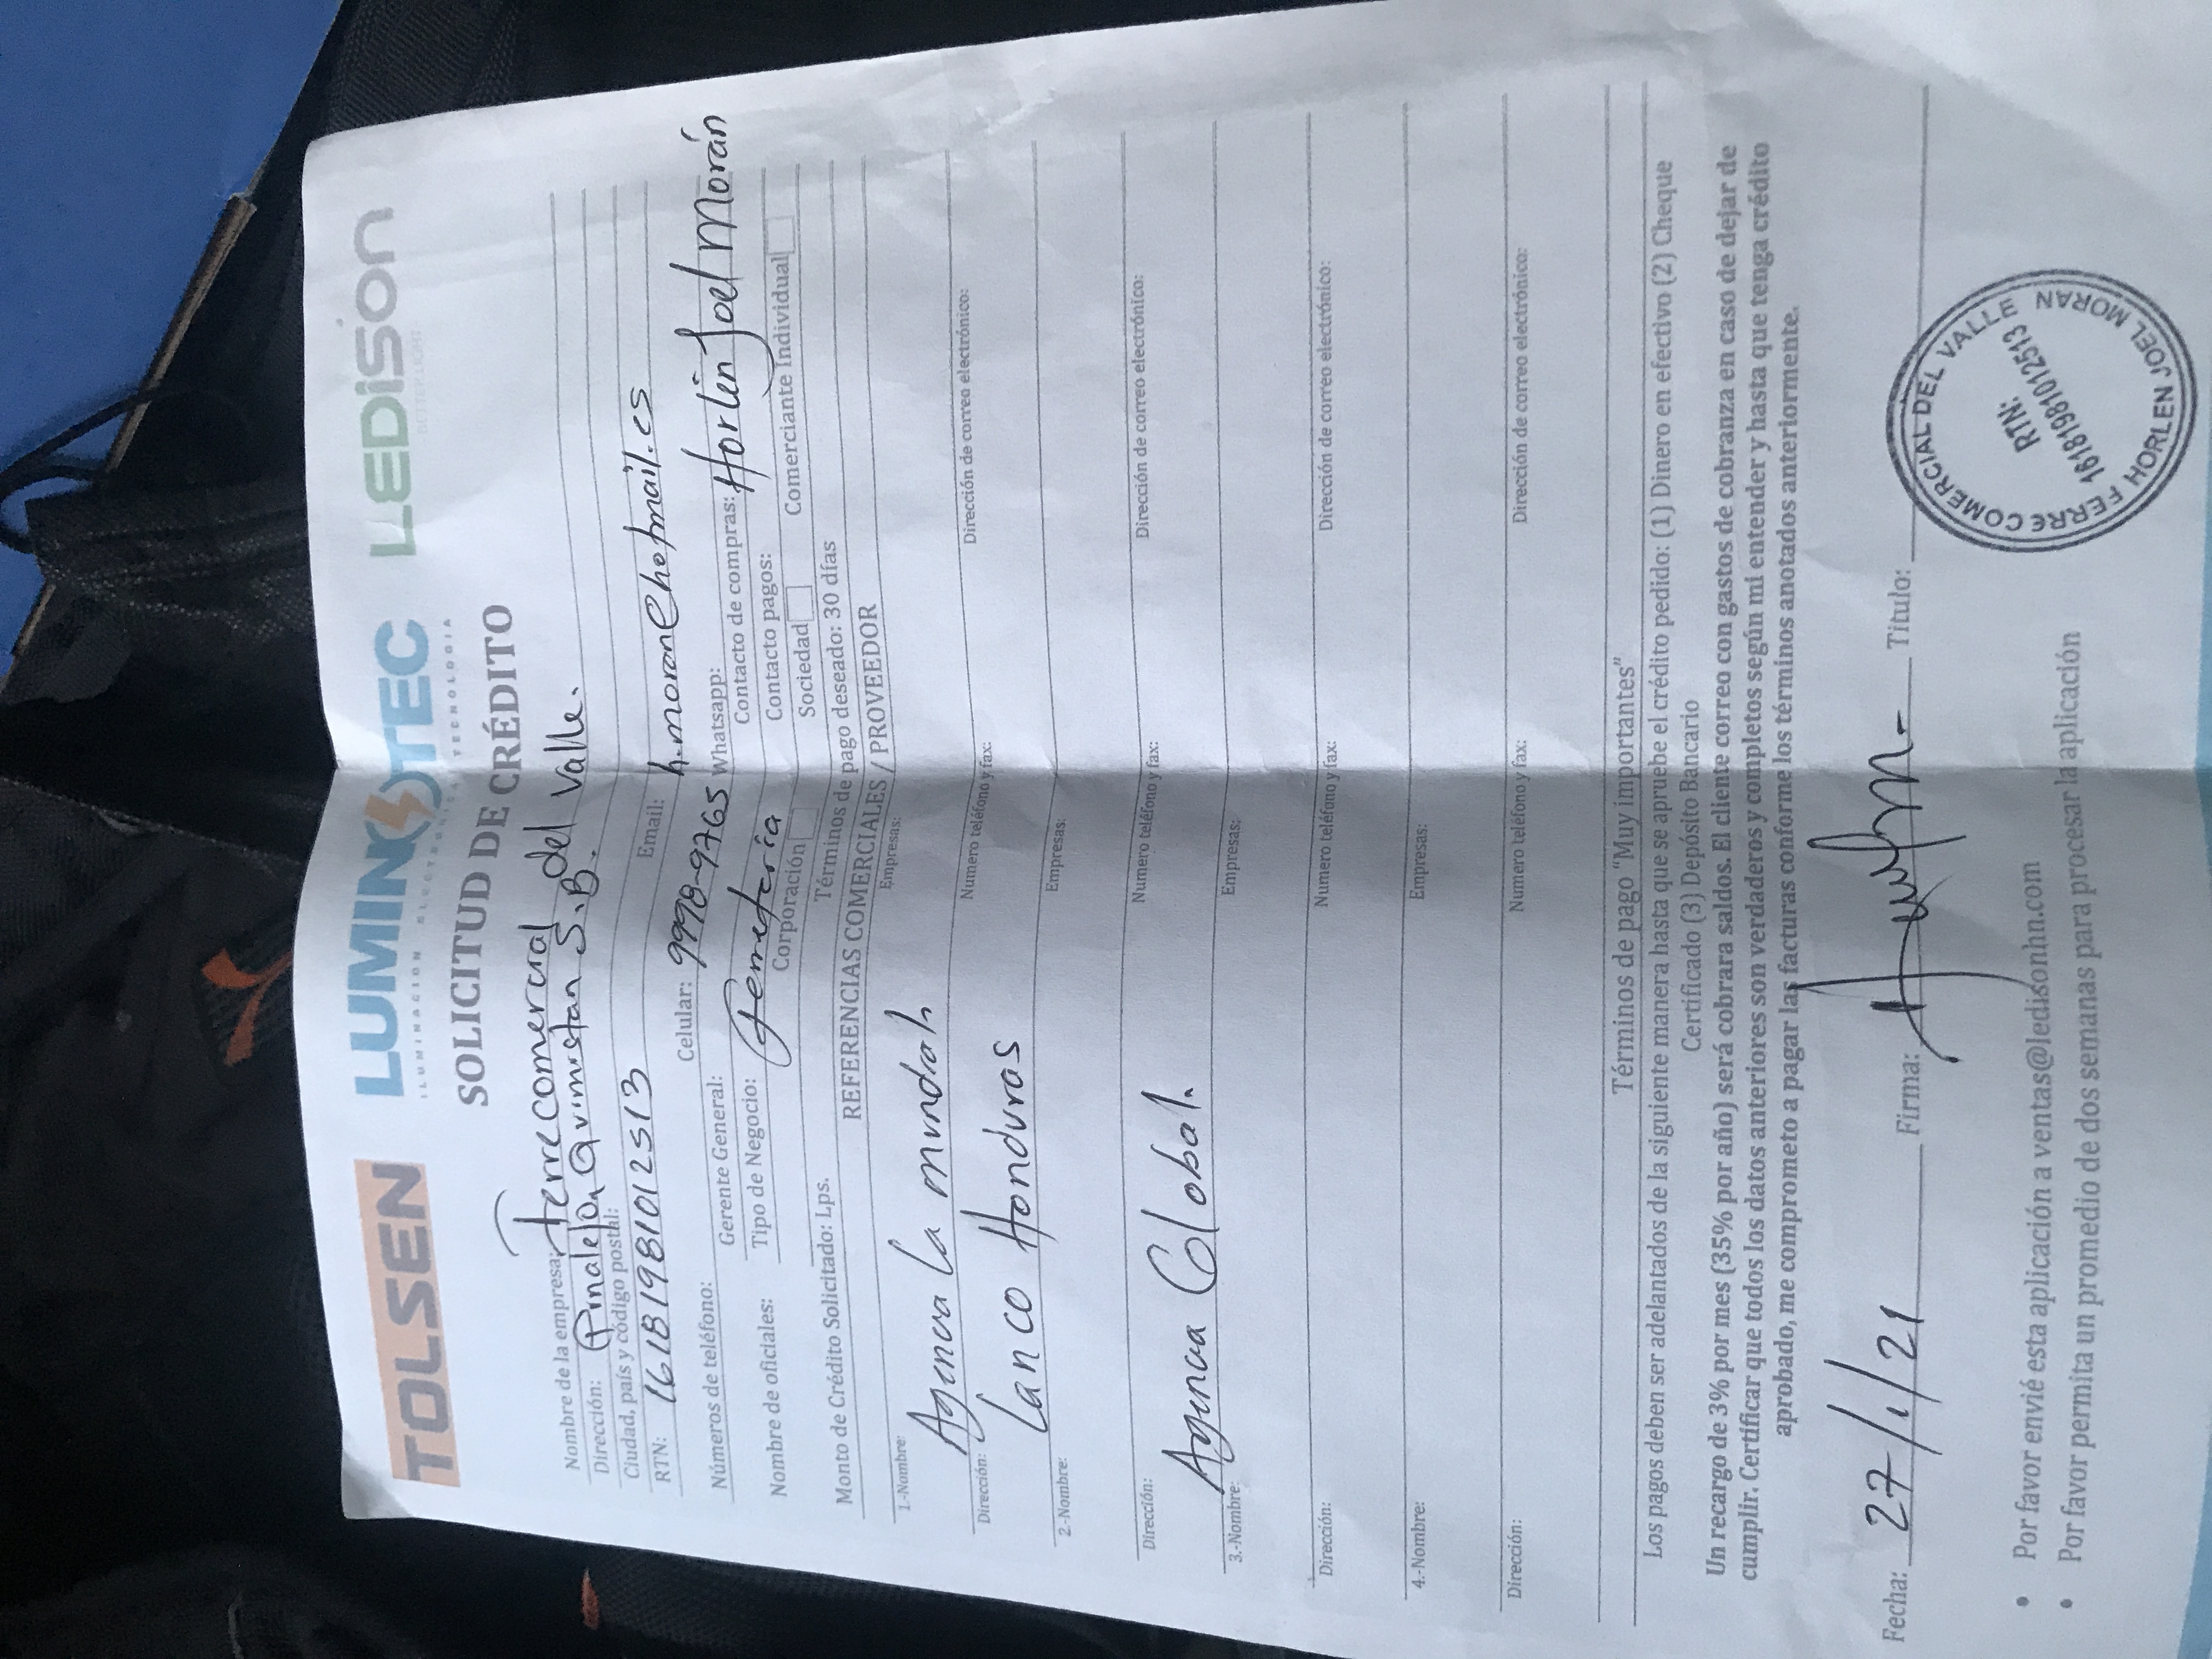 TOLSEN LUMINOTEC LEDISON
ILUMINACION ELECTRONICA TECNOLOGIA
BETTER LIGHT
SOLICITUD DE CRÉDITO
Nombre de la empresa: Ferrecomercial del Valle.
Dirección: Pinalejo, Quimistan S.B.
Ciudad, país y código postal:
RTN: 16181981012513 Email: h.moran@hotmail.es
Números de teléfono: Celular: 9998-9765 Whatsapp:
Gerente General: Contacto de compras: Horlin Joel Morán
Nombre de oficiales: Tipo de Negocio: Ferreteria Contacto pagos:
Corporación Sociedad Comerciante Individual
Monto de Crédito Solicitado: Lps. Términos de pago deseado: 30 días
REFERENCIAS COMERCIALES / PROVEEDOR
1.-Nombre: Agencia La mundial. Empresas:
Dirección: Lanco Honduras Numero teléfono y fax: Dirección de correo electrónico:
2.-Nombre: Empresas:
Dirección: Agencia Global. Numero teléfono y fax: Dirección de correo electrónico:
3.-Nombre: Empresas:
Dirección: Numero teléfono y fax: Dirección de correo electrónico:
4.-Nombre: Empresas:
Dirección: Numero teléfono y fax: Dirección de correo electrónico:
Términos de pago "Muy importantes"
Los pagos deben ser adelantados de la siguiente manera hasta que se apruebe el crédito pedido: (1) Dinero en efectivo (2) Cheque
Certificado (3) Depósito Bancario
Un recargo de 3% por mes (35% por año) será cobrara saldos. El cliente correo con gastos de cobranza en caso de dejar de
cumplir. Certificar que todos los datos anteriores son verdaderos y completos según mi entender y hasta que tenga crédito
aprobado, me comprometo a pagar las facturas conforme los términos anotados anteriormente.
Fecha: 27/1/21 Firma: Titulo:
FERRECOMERCIAL DEL VALLE
RTN:
16181981012513
HORLEN JOEL MORAN
• Por favor envié esta aplicación a ventas@ledisonhn.com
• Por favor permita un promedio de dos semanas para procesar la aplicación